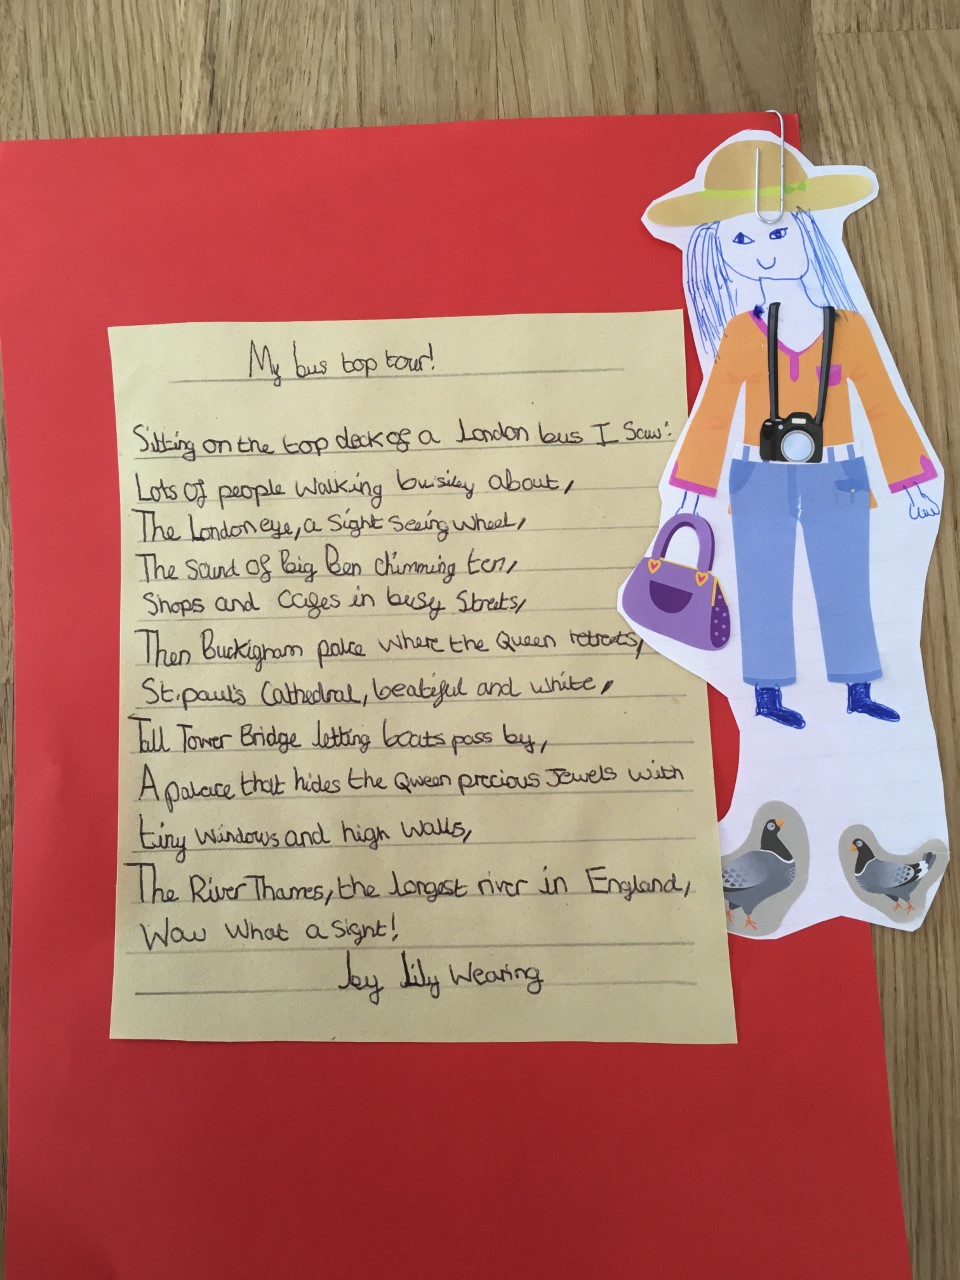 My bus top tour!
Sitting on the top deck of a London bus I saw:
Lots of people walking buisiley about,
The London eye, a sight seeing wheel,
The sound of Big Ben chimming ten,
Shops and cafes in busy streets,
Then Buckigham palce where the Queen retreats,
St.paul's Cathedral, beatiful and white,
Tall Tower Bridge letting boats pass by,
A palace that hides the Qween precious Jewels with
tiny windows and high walls,
The River Thames, the longest river in England,
Wow what a sight!
by Lily Wearing